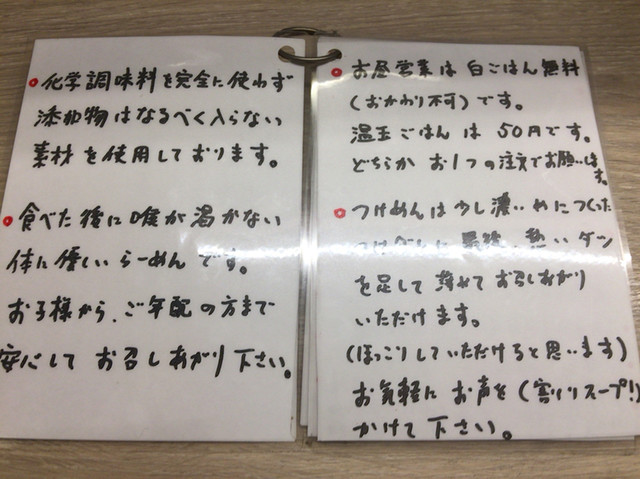 化学調味料を完全に使わず
添加物はなるべく入らない
素材を使用しております。
食べた後に喉が渇かない
体に優しいらーめんです。
お子様から、ご年配の方まで
安心してお召しあがり下さい。
お昼営業は白ごはん無料
(おかわり不可)です。
温玉ごはんは50円です。
どちらかお1つの注文でお願いします。
つけめんは少し濃いめにつくった
最後、熱いダシ
を足して薄めてお召しあがり
いただけます。
(ほっこりしていただけると思います)
お気軽にお声を(割りスープ!)
かけて下さい。